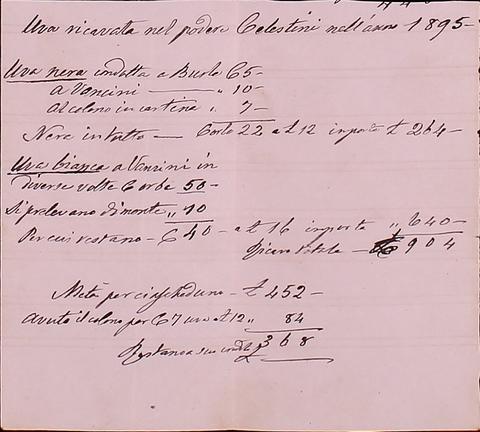 Uva ricavata nel podere Celestini nell'anno 1895-
Uva nera condotta a Burlo C 5-
a Vancini — „ 10-
al colono in cantina „ 7-
Nera in tutto — Corbe 22 a £ 12 importa £ 264-
Uva bianca a Vancini in
diverse volte Corbe 50-
Si prelevano di monte „ 10
Per cui restano - C 40 - a £ 16 importa „ 640-
Ricavo totale — £ 904
Metà per ciascheduno - £ 452-
avuto il colono per C 7 uva a £ 12 „ 84
Restano a suo £ 368